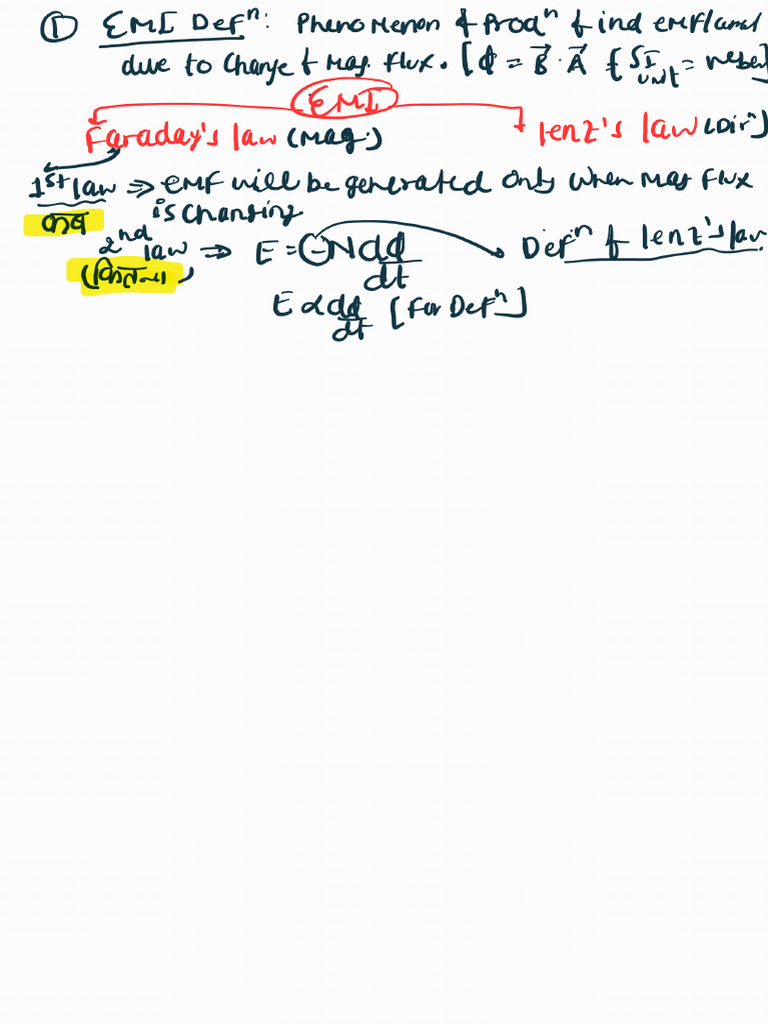 ① EMI Defⁿ: Phenomenon of Prodⁿ of ind emf/
due to change of Mag. flux. [ϕ = B⃗ · A⃗ {SI unit = weber]
EMI
Faraday's law (Mag.) lenz's law (Dirⁿ)
1st law ⇒ EMF will be generated only when Mag flux
कब is changing
2nd law ⇒ E = -N dϕ/dt Defⁿ of lenz's law
(कितना)
E ∝ dϕ/dt [For Defⁿ]